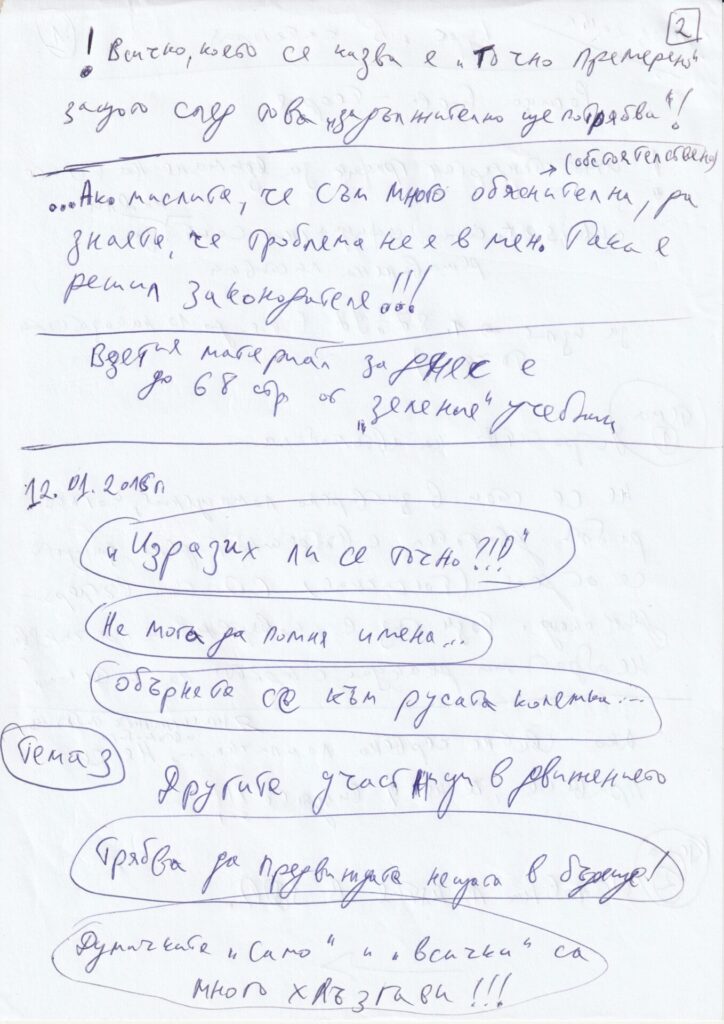 2
! Всичко, което се казва е „точно премерено"
защото след това „задължително ще потрябва"!
→ (обстоятелствено)
...Ако мислите, че съм много обяснителна, да
знаете, че проблема не е в мен. Така е
решил законодателя...!!!
Взетия материал за днес е
до 68 стр от
„зеления" учебник
12.01.2018г
„Изразих ли се точно?!!"
Не мога да помня имена...
Обърнете се към русата колежка...
Тема 3
Другите участници в движението
Трябва да предвиждате нещата в бъдеще!
Думичките „само" и „всички" са
много хлъзгави!!!